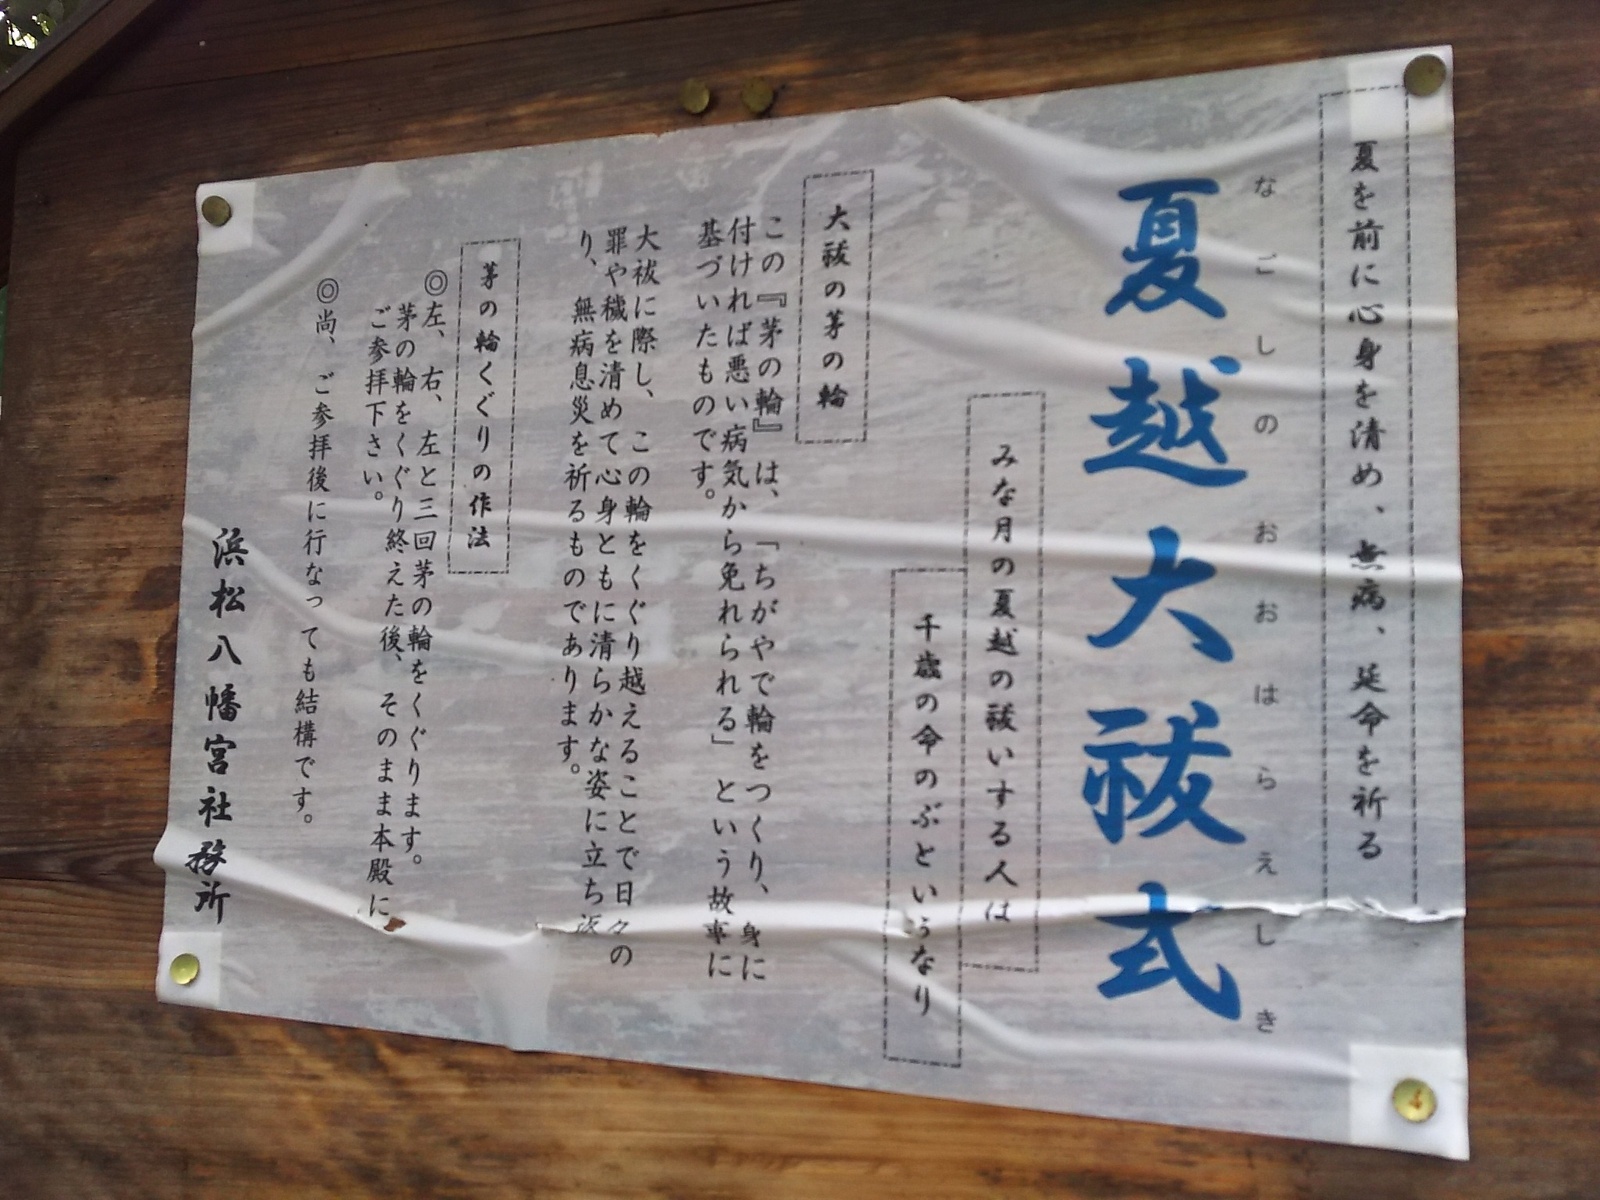 夏を前に心身を清め、無病、延命を祈る
なごしのおおはらえしき
夏越大祓式
みな月の夏越の祓いする人は
千歳の命のぶというなり
大祓の茅の輪
この『茅の輪』は、「ちがやで輪をつくり、身に
付ければ悪い病気から免れられる」という故事に
基づいたものです。
大祓に際し、この輪をくぐり越えることで日々の
罪や穢を清めて心身ともに清らかな姿に立ち返
り、無病息災を祈るものであります。
茅の輪くぐりの作法
◎左、右、左と三回茅の輪をくぐります。
茅の輪をくぐり終えた後、そのまま本殿に
ご参拝下さい。
◎尚、ご参拝後に行なっても結構です。
浜松八幡宮社務所